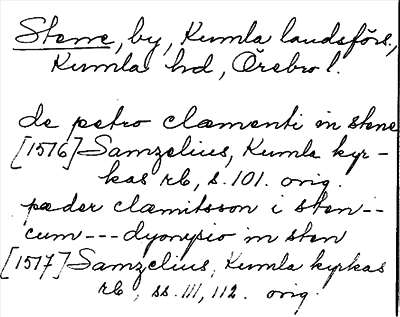 Stene, by, Kumla landsförs.,
Kumla hd, Örebro l.
de petro clæmenti in stene
[1516] Samzelius, Kumla kyr-
kas rb, s. 101. orig.
peder clæmitsson i sten--
cum---dyonysio in sten
[1517] Samzelius, Kumla kyrkas
rb, ss. 111, 112. orig.